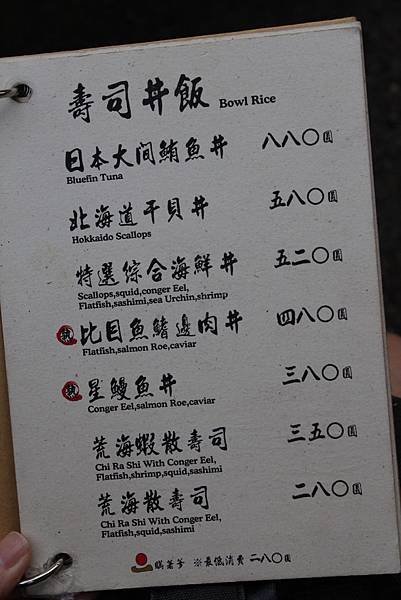 壽司丼飯 Bowl Rice
日本大间鮪魚丼 八八〇圓
Bluefin Tuna
北海道干貝丼 五八〇圓
Hokkaido Scallops
特選綜合海鮮丼 五二〇圓
Scallops,squid,conger Eel,
Flatfish,sashimi,sea Urchin,shrimp
比目魚鰭邊肉丼 四八〇圓
Flatfish,salmon Roe,caviar
星鰻魚丼 三八〇圓
Conger Eel,salmon Roe,caviar
荒海蝦散壽司 三五〇圓
Chi Ra Shi With Conger Eel,
Flatfish,shrimp,squid,sashimi
荒海散壽司 二八〇圓
Chi Ra Shi With Conger Eel,
Flatfish,squid,sashimi
※最低消費 二八〇圓